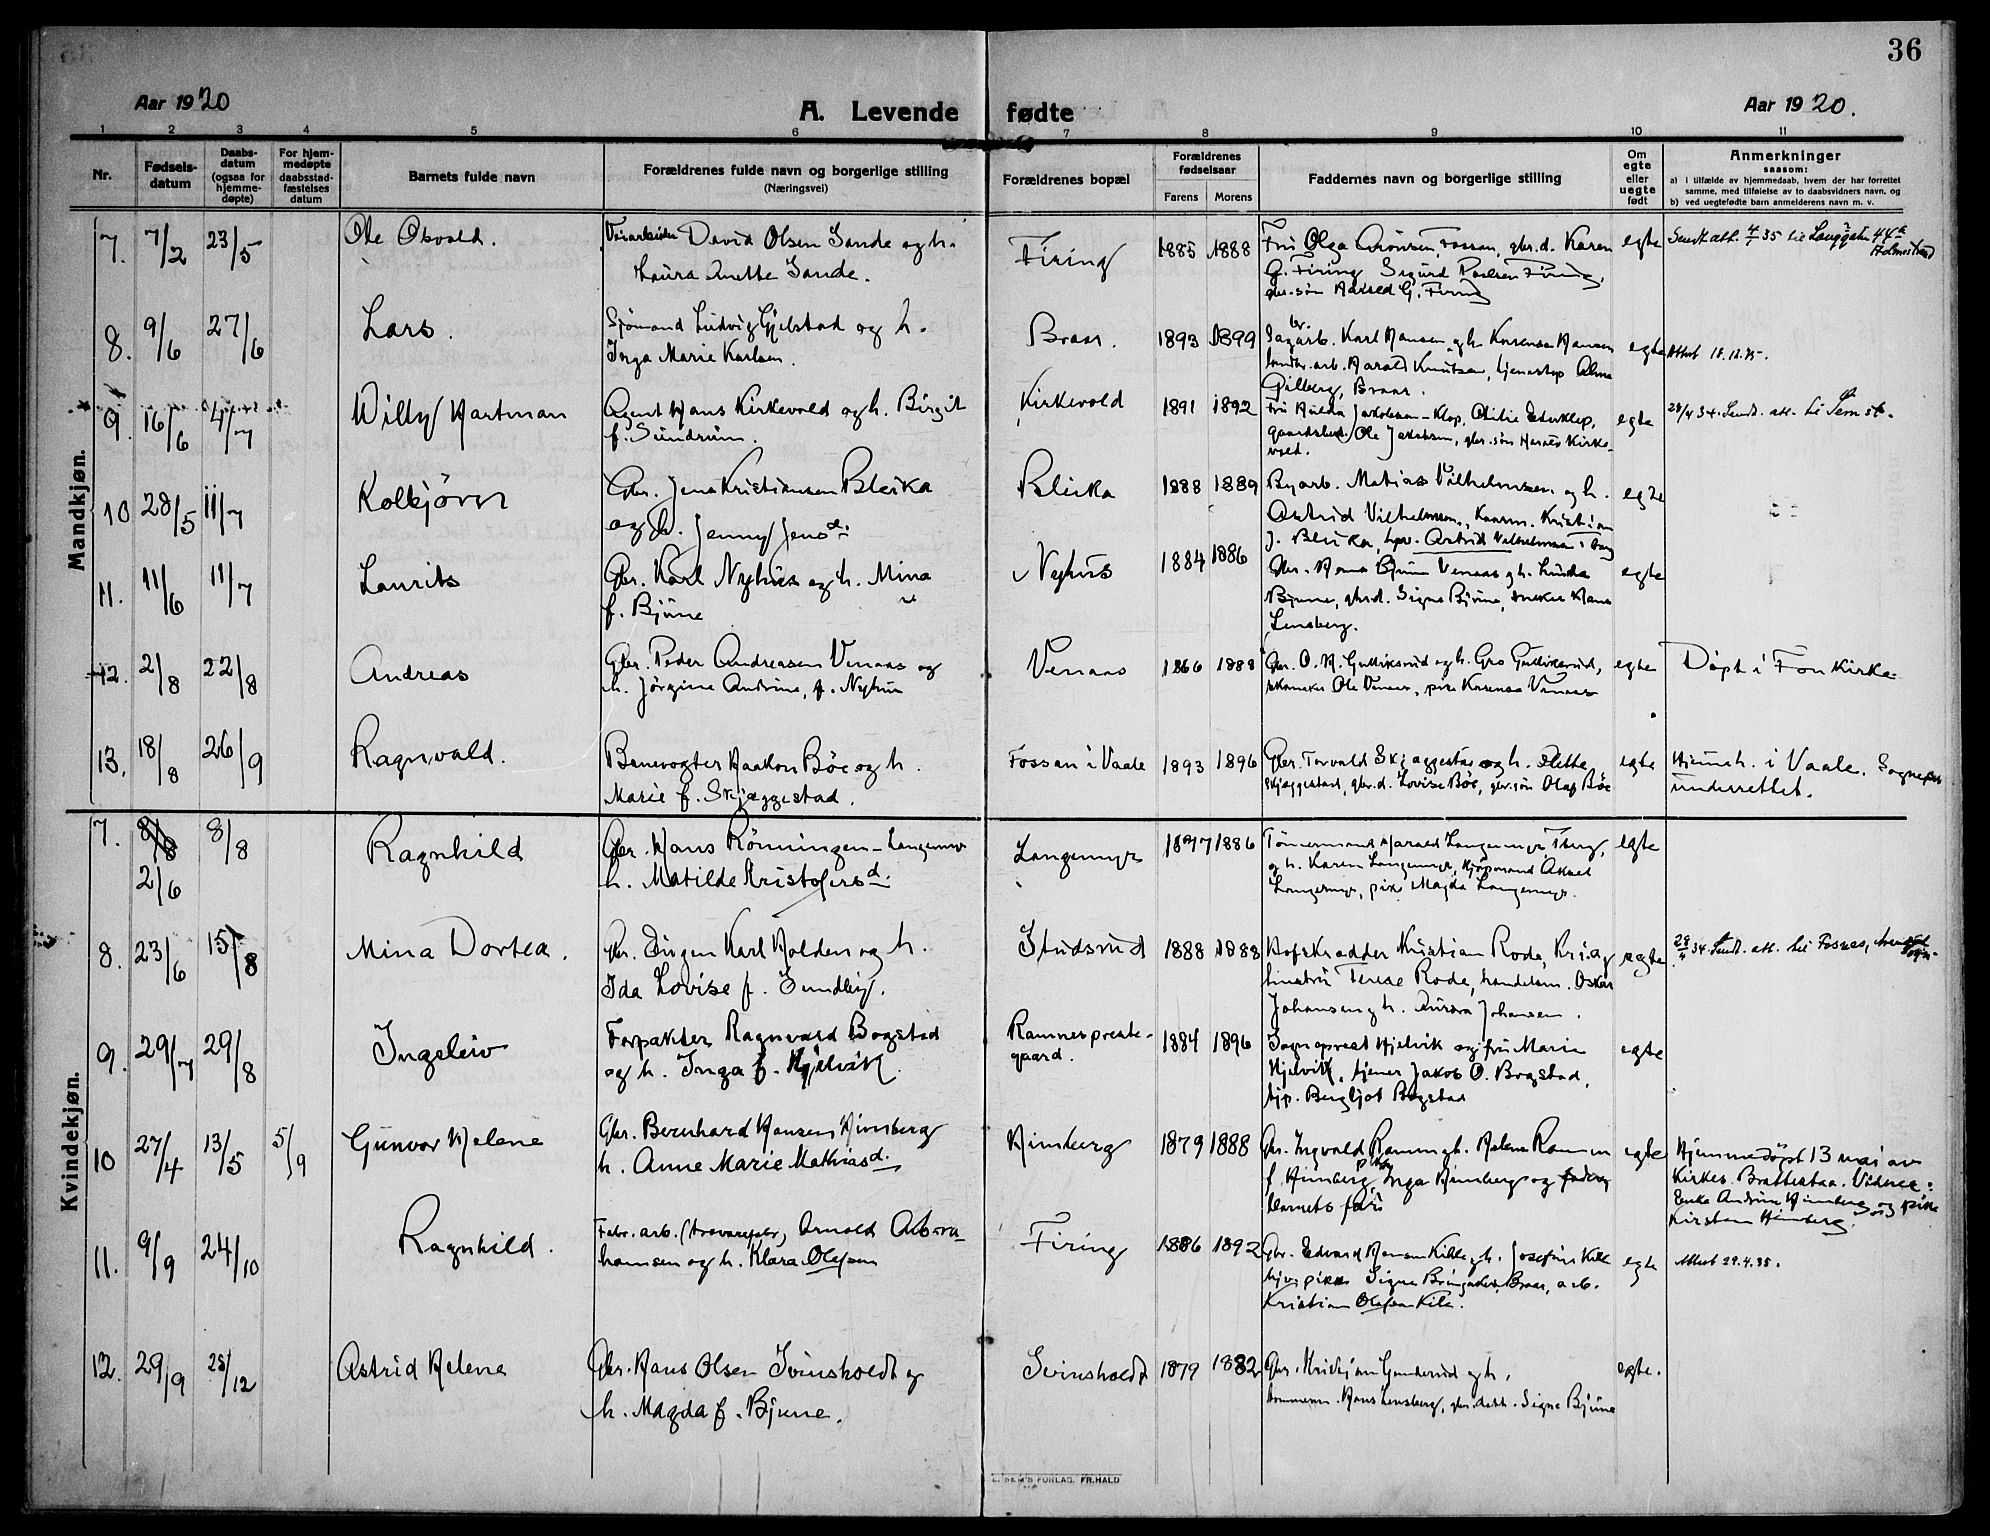 36
Aar 1920
A. Levende fødte
Aar 1920.
1 2 3 4 5 6 7 8 9 10 11
Nr.
Fødsels-
datum
Daabs-
datum
(ogsaa for
hjemme-
døpte)
For hjem-
medøpte
daabsstad-
fæstelses
datum
Barnets fulde navn
Forældrenes fulde navn og borgerlige stilling
(Næringsvei)
Forældrenes bopæl
Forældrenes
fødselsaar
Farens Morens
Faddernes navn og borgerlige stilling
Om
egte
eller
uegte
født
Anmerkninger
saasom:
a) i tilfælde av hjemmedaab, hvem der har forrettet
samme, med tilføielse av to daabsvidners navn, og
b) ved uegtefødte barn anmelderens navn m. v.
Mandkjøn.
7. 7/2 23/5 Ole Osvald. Veiarbeider David Olsen Sande og h.
Laura Anette Sande.
Firing 1885 1888 Fru Olga Aronsen, Fossan, gbr.d. Karen
G. Firing, Sigurd Paulsen Firing,
gbr.søn Aksel G. Firing
egte Sendt att. 4/7 35 til Langgaten 44a
Holmestrand
8. 9/6 27/6 Lars. Sjømand Ludvig Gjelstad og h.
Inga Marie Karlsen.
Braar. 1893 1899 Sagarb. Karl Hansen og h. Karensa Hansen
landbr.arb. Harald Knutsen, tjenestep. Alma
Gilberg, Braar.
egte Attest 18.12.45.
9. 16/6 4/7 Willy Hartman Agent Hans Kirkevold og h. Birgit
f. Sundrum.
Kirkevold 1891 1892 Fru Hulda Jakobsen-Klop, Otilie Ederklep,
Ole Jakobsen, gbr.søn Hans Kirke-
vold.
egte 28/4 34. Sendt att. til Sem st.
10 28/5 11/7 Kolbjörn Gbr. Jens Kristiansen Bleika
og h. Jenny Jensd.
Bleika 1888 1889 Byarb. Matias Vilhelmsen og h.
Astrid Vilhelmsen, Kristian
J. Bleika, Astrid Vilhelmsen
egte
11. 11/6 11/7 Laurits Gbr. Karl Nyhus og h. Mina
f. Bjune
Nyhus 1884 1886 Gbr. Hans Bjune Venaas og h. Lovise
Bjune, gbr.d. Signe Bjune, Hans
Lensberg.
egte
12. 2/8 22/8 Andreas Gbr. Peder Andreasen Venaas og
h. Jörgine Andrine, f. Nyhus
Venaas 1866 1888 Gbr. O. H. Gulliksrud og h. Gro Gulliksrud,
skomaker Ole Venaas, pike Karensa Venaas
egte Döpt i Fon Kirke.
13. 18/8 26/9 Ragnvald. Banevogter Haakon Böe og h.
Marie f. Skjæggestad.
Fossan i Vaale 1893 1896 Gbr. Torvald Skjæggestad og h. Sletta
Skjæggestad, gbr.d. Lovise Böe, gbr.søn Olaf Böe
egte Hjemh. i Vaale. Sognepr.
underrettet.
Kvindekjøn.
7. 8/8 8/8 Ragnhild Gbr. Hans Rönningen-Langemyr
2/6 h. Matilde Kristofersd.
Langemyr 1877 1886 Tömmermand Harald Langemyr, Tbrg,
og h. Karen Langemyr, kjöpmand Aksel
Langemyr, pike Magda Langemyr.
egte
8. 23/6 15/8 Mina Dortea. Gbr. Birger Karl Holden og h.
Ida Lovise f. Sundby.
Studsrud 1888 1888 Hofskrædder Kristian Rode, Kr.ia, og
hustru Terese Rode, handelsm. Oskar
Johansen og h. Aurora Johansen.
egte 28/4 34. Sendt. att. til Fosnes, Arendal
9. 29/7 29/8 Ingeleiv Forpakter Ragnvard Bogstad
og h. Inga f. Hjelvik.
Ramnes preste-
gaard. 1884 1896 Sogneprest Hjelvik og fru Marie
Hjelvik, tjener Jakob O. Bogstad,
tjp. Bergljot Bogstad
egte
10 27/4 13/5 5/9 Gunvor Helene Gbr. Bernhard Hansen Himberg
h. Anne Marie Mathiasd.
Himberg 1879 1888 Gbr. Ingvald Ramm og h. Helene Ramm
f. Himberg, pike Inga Himberg og
barnets far
egte Hjemmedöpt 13 mai av
Kirkes. Brattestaa. Vidner:
Enke Andrine Himberg og pike
Kirsten Himberg.
11. 9/9 24/10 Ragnhild. Fabr.arb. (trævarefabr.) Arnold Abra-
hamsen og h. Klara Olefsen
Firing 1886 1892 Gbr. Edvard Hansen Kille og h. Josefine Kille
hjv. pike Signe Bringaker, Braar, arb.
Kristian Olefsen Kile.
egte Attest 29.4.35.
12. 29/9 25/12 Astrid Helene Gbr. Hans Olsen Svinsholdt og
h. Magda f. Bjune.
Svinsholdt 1879 1882 Gbr. Kristian Gunderud og h.,
Hans Lensberg, gbr.datt. Signe Bjune
egte.
E. SEM'S FORLAG. FR.HALD